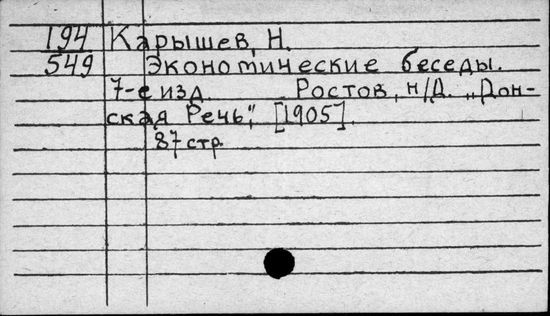 194 Карышев, Н.
549 Экономические беседы.
7-е изд. Ростов, н/Д. „Дон-
ская Речь", [1905].
87 стр.